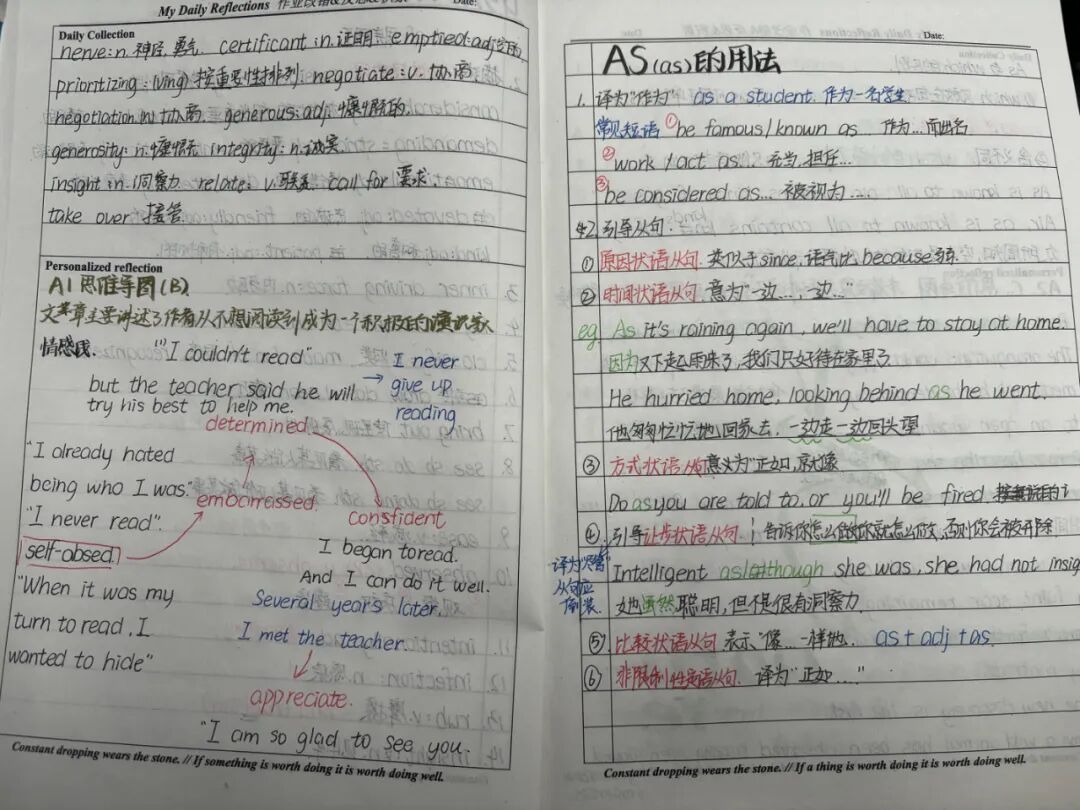 My Daily Reflections
Date:
Daily Collection
nerve: n. 神经. 勇气. certificant: n. 证明. emptied: adj 空的,
prioritizing: (ving) 按重要性排列 negotiate: v. 协商.
negotiation. (n) 协商. generous: adj. 慷慨的.
generosity: n. 慷慨 integrity: n. 诚实
insight: n. 洞察力. relate: v. 联系. call for 要求
take over 接管.
Personalized reflection
A1 思维导图(B).
文章主要讲述了作者从不想阅读到成为一个积极的演说家
情感线.
(1)"I couldn't read"
but the teacher said he will
try his best to help me.
→ I never
give up
reading
determined
"I already hated
being who I was."
embarrassed.
"I never read".
constident
self-absed.
I began to read.
And I can do it well.
"When it was my
turn to read, I
wanted to hide"
Several years later,
I met the teacher.
appreciate.
"I am so glad to see you.
Constant dropping wears the stone. // If something is worth doing it is worth doing well.
Date:
AS(as)的用法
1. 译为"作为" as a student. 作为一名学生
常见短语 ① be famous/known as... 作为...而出名
② work/act as... 充当, 担任...
③ be considered as... 被视为...
2 引导从句:
① 原因状语从句. 类似于since, 语气比because弱.
② 时间状语从句. 意为"一边..., 一边..."
eg. As it's raining again, we'll have to stay at home.
因为又下起雨来了, 我们只好待在家里了
He hurried home, looking behind as he went.
他匆匆忙忙地回家去, 一边走一边回头望
③ 方式状语从句 意义为"正如, 就像
Do as you are told to, or you'll be fired
④ 引导让步状语从句. 告诉你怎么做你就怎么做, 否则你会被开除
译为"尽管"
从句应
倒装.
Intelligent as/though she was, she had not insig
她虽然聪明, 但不是很有洞察力.
⑤ 比较状语从句 表示"像...一样地. as + adj + as.
⑥ 非限制性定语从句. 译为"正如..."
Constant dropping wears the stone. // If a thing is worth doing it is worth doing well.